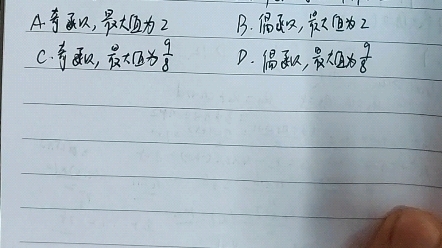 A.奇函数,最大值为2 B.偶函数,最大值为2
C.奇函数,最大值为9/8 D.偶函数,最大值为9/8